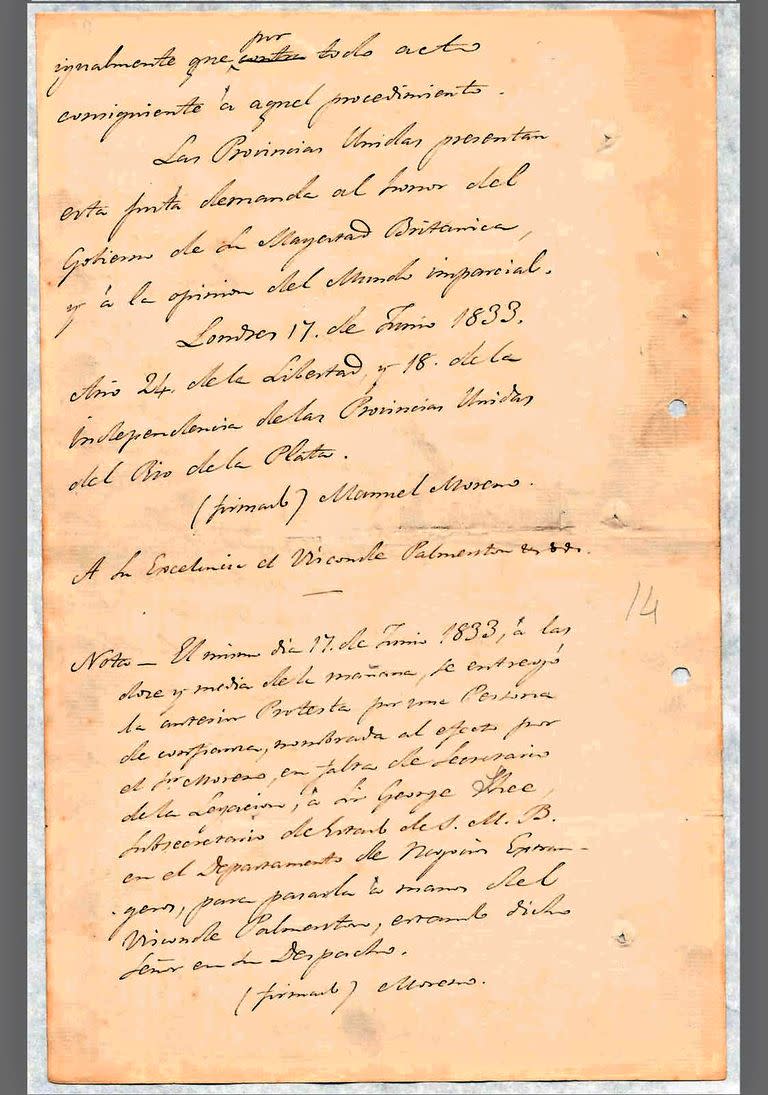 igualmente que por contra todo acto
consiguiente á aquel procedimiento.
Las Provincias Unidas presentan
esta justa demanda al honor del
Gobierno de Su Magestad Britanica,
y á la opinion del Mundo imparcial.
Londres 17. de Junio 1833.
Año 24. de la Libertad, y 18. de la
independencia de las Provincias Unidas
del Rio de la Plata.
(firmado) Manuel Moreno.
A Su Excelencia el Visconde Palmerston &c &c &c.
14
Nota — El mismo dia 17. de Junio 1833, á las
doze y media de la mañana, se entregó
la anterior Protesta por una Persona
de confianza, nombrada al efecto por
el Sr. Moreno, en falta de Secretario
de la Legacion, á Sir George Shee,
Subsecretario de Estado de S. M. B.
en el Departamento de Negocios Extran-
geros, para pasarla á manos del
Visconde Palmerston, estando dicho
Señor en su Despacho.
(firmado) Moreno.